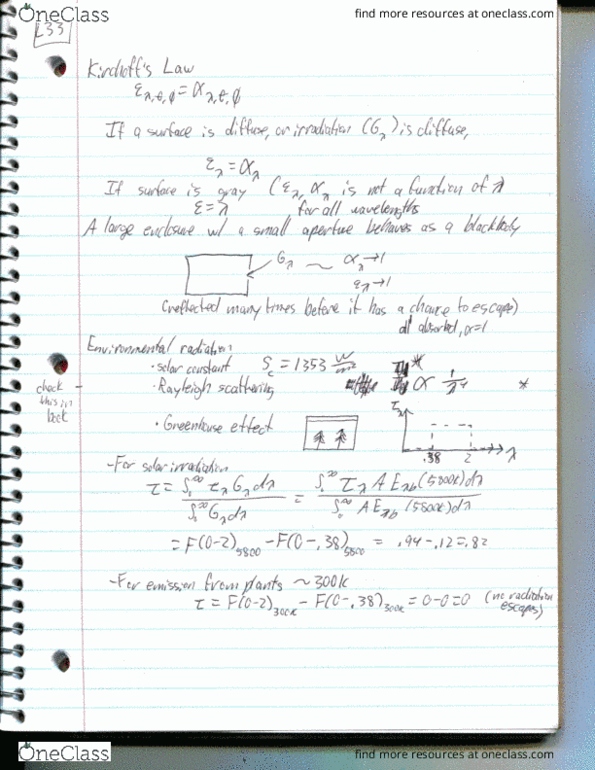 OneClass
find more resources at oneclass.com
L33
Kirchoff's Law
ε λ,θ,φ = α λ,θ,φ
If a surface is diffuse, or irradiation (G_λ) is diffuse,
ε_λ = α_λ
If surface is gray (ε_λ, α_λ is not a function of λ
ε = λ for all wavelengths
A large enclosure w/ a small aperture behaves as a blackbody
G_λ α_λ → 1
ε_λ → 1
(reflected many times before it has a chance to escape)
all absorbed, α=1
Environmental radiation:
· solar constant S_c = 1353 W/m²
· Rayleigh scattering ∝ 1/λ⁴ *
check this in book
· Greenhouse effect
τ_λ
.38 2 λ
- For solar irradiation
τ = ∫₀^∞ τ_λ G_λ dλ / ∫₀^∞ G_λ dλ = ∫₀^∞ τ_λ A E_λb (5800k) dλ / ∫₀^∞ A E_λb (5800k) dλ
= F(0-2)_5800 - F(0-.38)_5800 = .94 - .12 = .82
- For emission from plants ~ 300k
τ = F(0-2)_300k - F(0-.38)_300k = 0-0=0 (no radiation escapes)
OneClass
find more resources at oneclass.com